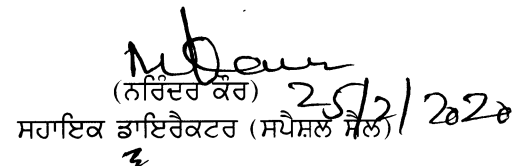 (ਨਰਿੰਦਰ ਕੌਰ) 25/2/2020
ਸਹਾਇਕ ਡਾਇਰੈਕਟਰ (ਸਪੈਸ਼ਲ ਸੈੱਲ)